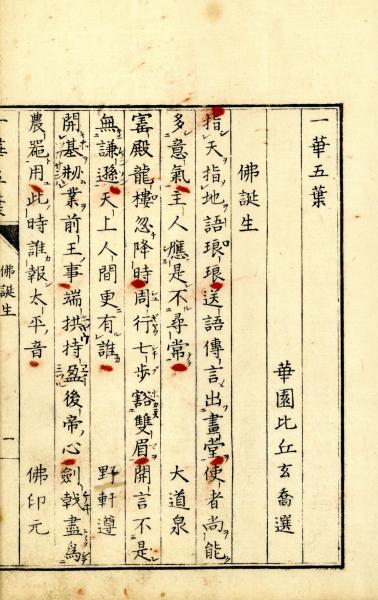 一華五葉
華園比丘玄喬選
佛誕生
指天指地語琅琅送語傳言出畫堂使者尚能
多意氣主人應是不尋常　大道泉
寳殿龍樓忽降時周行七步豁雙眉開言不是
無謙遜天上人間更有誰　野軒遵
開基刱業前王事端拱持盈後帝心劍戟盡爲
農器用此時誰報太平音　佛印元
佛誕生
一